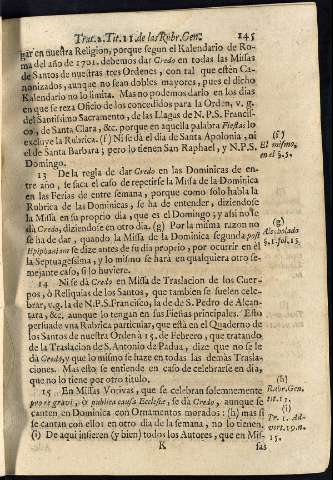 Trat. 2. Tit. 11 de las Rubr. Gen. 145
gar en nuestra Religion, porque segun el Kalendario de Ro-
ma del año de 1701. debemos dar Credo en todas las Missas
de Santos de nuestras tres Ordenes, con tal que estèn Ca-
nonizados, aunque no sean dobles mayores, pues el dicho
Kalendario no lo limita. Mas no podemos darlo en los dias
en que se reza Oficio de los concedidos para la Orden, v. g.
del Santissimo Sacramento, de las Llagas de N. P. S. Francis-
co, de Santa Clara, &c. porque en aquella palabra Fiestas lo
excluye la Rubrica. (f) Ni se dà el dia de Santa Apolonia, ni
el de Santa Barbara; pero lo tienen San Raphael, y N. P. S.
Domingo.
(f)
El mismo,
en el §. 5.
13 De la regla de dar Credo en las Dominicas de en-
tre año, se saca el caso de repetirse la Missa de la Dominica
en las Ferias de entre semana, porque como solo habla la
Rubrica de las Dominicas, se ha de entender, diziendose
la Missa en su proprio dia, que es el Domingo; y assi no se
dà Credo, diziendose en otro dia. (g) Por la misma razon no
se ha de dar, quando la Missa de la Dominica segunda post
Epiphaniam se dize antes de su dia proprio, por ocurrir en èl
la Septuagessima, y lo mismo se harà en qualquiera otro se-
mejante caso, si lo huviere.
(g)
§. 1. fol. 15.
14 Ni se dà Credo en Missa de Traslacion de los Cuer-
pos, ò Reliquias de los Santos, que tambien se suelen cele-
brar, v. g. la de N. P. S. Francisco, la de S. Pedro de Alcan-
tara, &c. aunque lo tengan en sus Fiestas principales. Esto
persuade una Rubrica particular, que està en el Quaderno de
los Santos de nuestra Orden à 15. de Febrero, que tratando
de la Traslacion de S. Antonio de Padua, dize que no se le
dà Credo, y que lo mismo se haze en todas las demàs Trasla-
ciones. Mas esto se entiende en caso de celebrarse en dia,
que no lo tiene por otro titulo.
15 En Missas Votivas, que se celebran solemnemente
pro re gravi, ò publica causa Ecclesiæ, se dà Credo, aunque se
canten en Dominica con Ornamentos morados: (h) mas si
se cantan con ellos en otro dia de la semana, no lo tienen.
(i) De aqui infieren (y bien) todos los Autores, que en Mis-
(h)
Rubr. Gen.
tit. 11.
(i)
Tr. 1. Ad-
vert. 19. n.
15.
K
sas